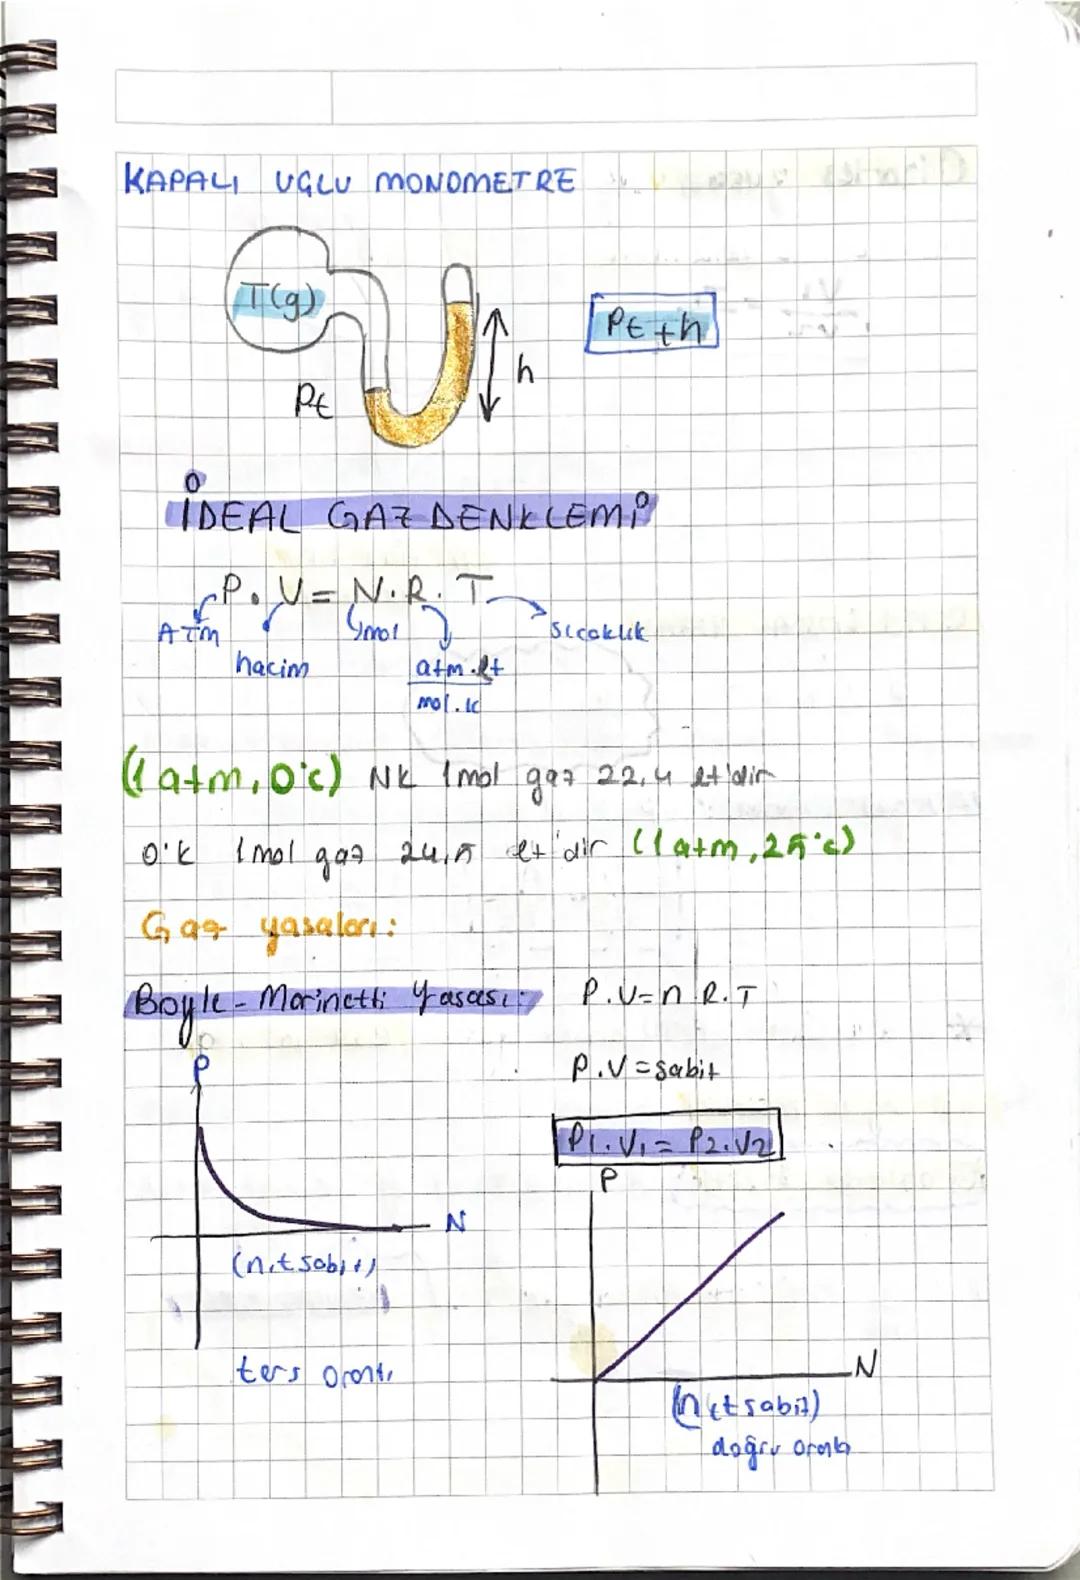 KAPALI UÇLU MONOMETRE
T(g)
Pt + h
h
Pt
İDEAL GAZ DENKLEMİ
P.V = N.R.T
ATM
mol
Sıcaklık
hacim
atm.lt
mol.K
(1 atm, 0°c) NK 1mol gaz 22,4 lt'dir
O'K 1mol gaz 24,5 lt'dir (1 atm, 25°c)
Gaz yasaları:
Boyle - Marinetti Yasası:
P.V=n R.T
P.V = sabit
P1.V1 = P2.V2
P
N
(n,t sabit)
ters orantı
P
N
(n,t sabit)
doğru orantı